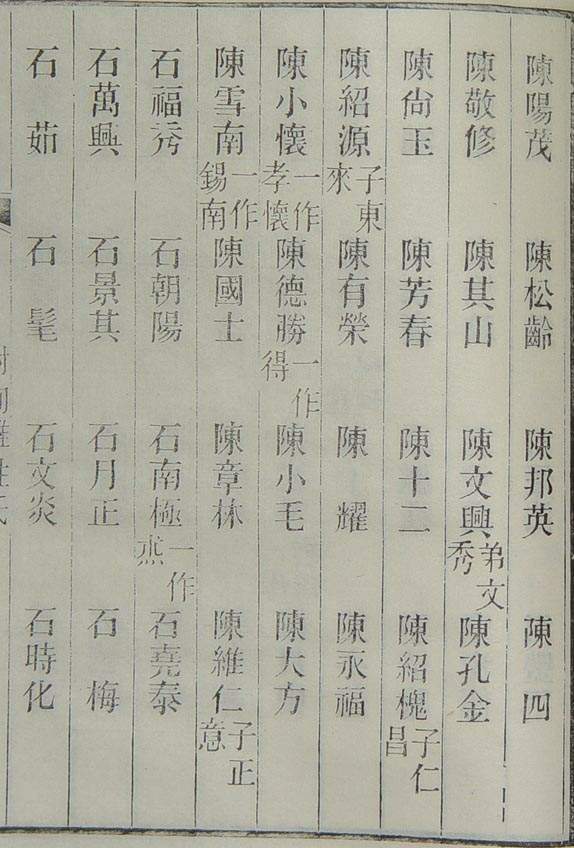 陳陽茂 陳松齡 陳邦英 陳四
陳敬修 陳其山 陳文興弟文秀 陳孔金
陳尙玉 陳芳春 陳十二 陳紹槐子仁昌
陳紹源子東來 陳有榮 陳耀 陳永福
陳小懷一作孝懷 陳德勝一作得 陳小毛 陳大方
陳雪南一作錫南 陳國士 陳章林 陳維仁子正意
石福秀 石朝陽 石南極一作燾 石堯泰
石萬興 石景其 石月正 石梅
石茹 石髦 石文炎 石時化